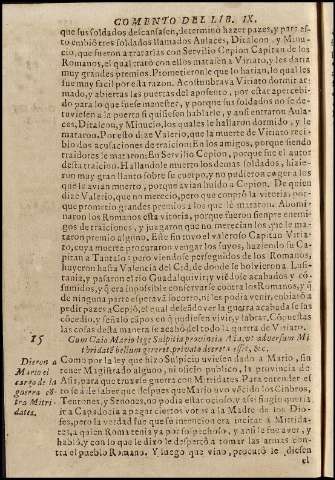 COMENTO DEL LIB. IX.
que sus soldados descansasen, determinó hazer pazes, y para es-
to embió tres soldados llamados Aulaces, Ditalcon, y Minu-
cio, que fueron a tratarlas con Servilio Cepion Capitan de los
Romanos, el qual trató con ellos matassen a Viriato, y les daria
muy grandes premios. Prometieronle que lo harian, lo qual les
fue muy facil por esta razon. Acostumbrava Viriato dormir ar-
mado, y abiertas las puertas del aposento, por estar apercebi-
do para lo que fuese menester, y porque sus soldados no se de-
tuviesen a la puerta si quisiesen hablarle, y ansi entraron Aula-
ces, Ditalcon, y Minucio, los quales le hallaron dormido, y le
mataron. Por esto dize Valerio, que la muerte de Viriato reci-
bio dos acusaciones de traicion: En los amigos, porque siendo
traidores le mataron: En Servilio Cepion, porque fue el autor
desta traicion. Hallandole muerto los demas soldados, hizie-
ron muy gran llanto sobre su cuerpo, y no pudieron coger a los
que le avian muerto, porque avian huido a Cepion. De quien
dize Valerio, que no mereció, pero que compró la vitoria: por-
que prometio grandes premios a los que le mataron. Abomi-
naron los Romanos esta vitoria, porque fueron sienpre enemi-
gos de traiciones, y juzgaron que no merecian los que le ma-
taron premio alguno. Este fin tuvo el valeroso Capitan Viria-
to, cuya muerte procuraron vengar los suyos, haziendo su Ca-
pitan a Tantalo: pero viendose perseguidos de los Romanos,
huyeron hasta Valencia del Cid, de donde bolvieron a Lusi-
tania, y pasaron el rio Guadalquivir, y viédose acabados y cō-
sumidos, y q̄ era imposible conservarse contra los Romanos, y q̄
de ninguna parte esperavā socorro, ni les podia venir, enbiarō a
pedir pazes a Cepiō, el qual deseādo ver la guerra acabada se las
cōcedio, y señaló cāpos en q̄ pudiesen vivir, y labrar. Cō questas
las cosas desta manera se acabó del todo la guerra de Viriato.
15 Cum Caio Mario lege Sulpitia provincia Asia, ut adversum Mi
thridatē bellum gereret, privato decreta esset, &c.
Dieron a
Mario el
cargo de la
guerra cō
tra Mitri-
dates.
Como por la ley que hizo Sulpicio uviesen dado a Mario, sin
tener Magistrado alguno, ni oficio publico, la provincia de
Asia, para que truxese guerra con Mitridates. Para entender es
to se à de saber que despues que Mario uvo vēcido los Cinbros,
Teutones, y Senones, no podia estar ocioso, y asi fingio queria
ir a Capadocia a pagar ciertos votos a la Madre de los Dio-
ses, pero la verdad fue que su intencion era incitar a Mitrida-
tes, a quien Roma tenia ya por sospechoso, y ansi le fue a ver, y
habló, y con lo que le dixo le despertó a tomar las armas con-
tra el pueblo Romano. Y luego que vino, procuró le diesen
el